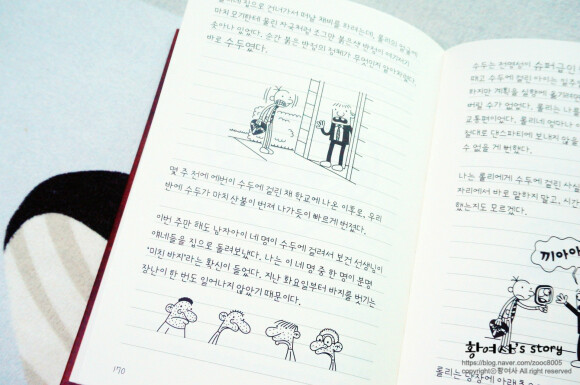 롤리네 집으로 건너가서 떠날 채비를 하려는데, 롤리의 얼굴에
마치 모기한테 물린 자국처럼 조그만 붉은색 반점이 여기저기
솟아나 있었다. 순간 붉은 반점의 정체가 무엇인지 알아차렸다.
바로 수두였다.
몇 주 전에 에번이 수두에 걸린 채 학교에 나온 이후로, 우리
반에 수두가 마치 산불이 번져 나가듯이 빠르게 번졌다.
이번 주만 해도 남자아이 네 명이 수두에 걸려서 보건 선생님이
얘네들을 집으로 돌려보냈다. 나는 이 네 명 중 한 명이 분명
'미친 바지'라는 확신이 들었다. 지난 화요일부터 바지를 벗기는
장난이 한 번도 일어나지 않았기 때문이다.
170
수두는 전염성이 슈퍼급인
때고 수두에 걸린 아이는 일주
하지만 계획을 실행에 옮기려
버릴 수가 없었다. 롤리는 나를
교통편이었다. 롤리네 엄마나
절대로 댄스파티에 보내지 않을
수 없을 게 뻔했다.
나는 롤리에게 수두에 걸린 사실
자리에서 바로 말하지 말고, 시간
했는지도 모르겠다.
끼아아
롤리는 냉장에 아래층으
황여사's story
https://blog.naver.com/zooc8005
copyrightⓒ황여사 All right reserved